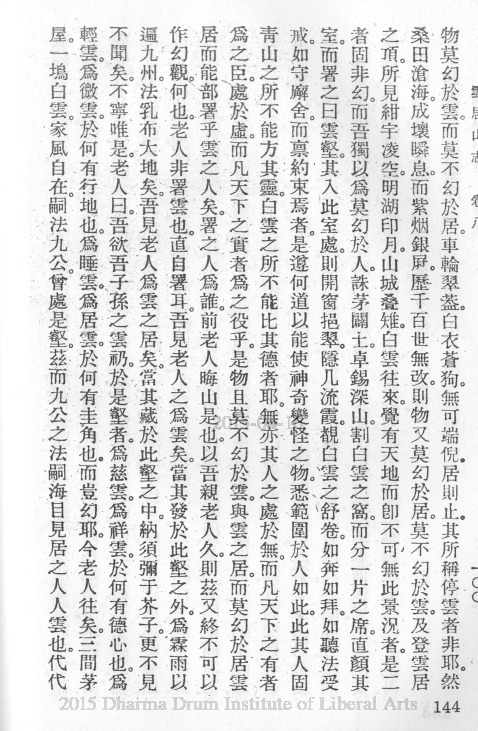 雲居山志　卷八　一〇〇
物莫幻於雲而莫不幻於居車輪翠蓋白衣蒼狗無可端倪居則止其所稱停雲者非耶然
桑田滄海成壞瞬息而紫烟銀屏歷千百世無改則物又莫幻於居莫不幻於雲及登雲居
之頂所見紺宇凌空明湖印月山城叠雉白雲往來覺有天地而卽不可無此景況者是二
者固非幻而吾獨以爲莫幻於人誅茅闢土卓錫深山割白雲之窩而分一片之席直顏其
室而署之曰雲壑其入此室處則開窗挹翠隱几流霞覩白雲之舒卷如奔如拜如聽法受
戒如守廨舍而禀約束焉者是遵何道以能使神奇變怪之物悉範圍於人如此此其人固
靑山之所不能方其靈白雲之所不能比其德者耶無亦其人之處於無而凡天下之有者
爲之臣處於虛而凡天下之實者爲之役乎是物且莫不幻於雲與雲之居而莫幻於居雲
居而能部署乎雲之人矣署之人爲誰前老人晦山是也以吾親老人久則茲又終不可以
作幻觀何也老人非署雲也直自署耳吾見老人之爲雲矣當其發於此壑之外爲霖雨以
遍九州法乳布大地矣吾見老人爲雲之居矣當其藏於此壑之中納須彌于芥子更不見
不聞矣不寧唯是老人曰吾欲吾子孫之雲礽於是壑者爲慈雲爲祥雲於何有德心也爲
輕雲爲微雲於何有行地也爲睡雲爲居雲於何有圭角也而豈幻耶今老人往矣三間茅
屋一塢白雲家風自在嗣法九公曾處是壑茲而九公之法嗣海目見居之人人雲也代代
2015 Dharma Drum Institute of Liberal Arts
144